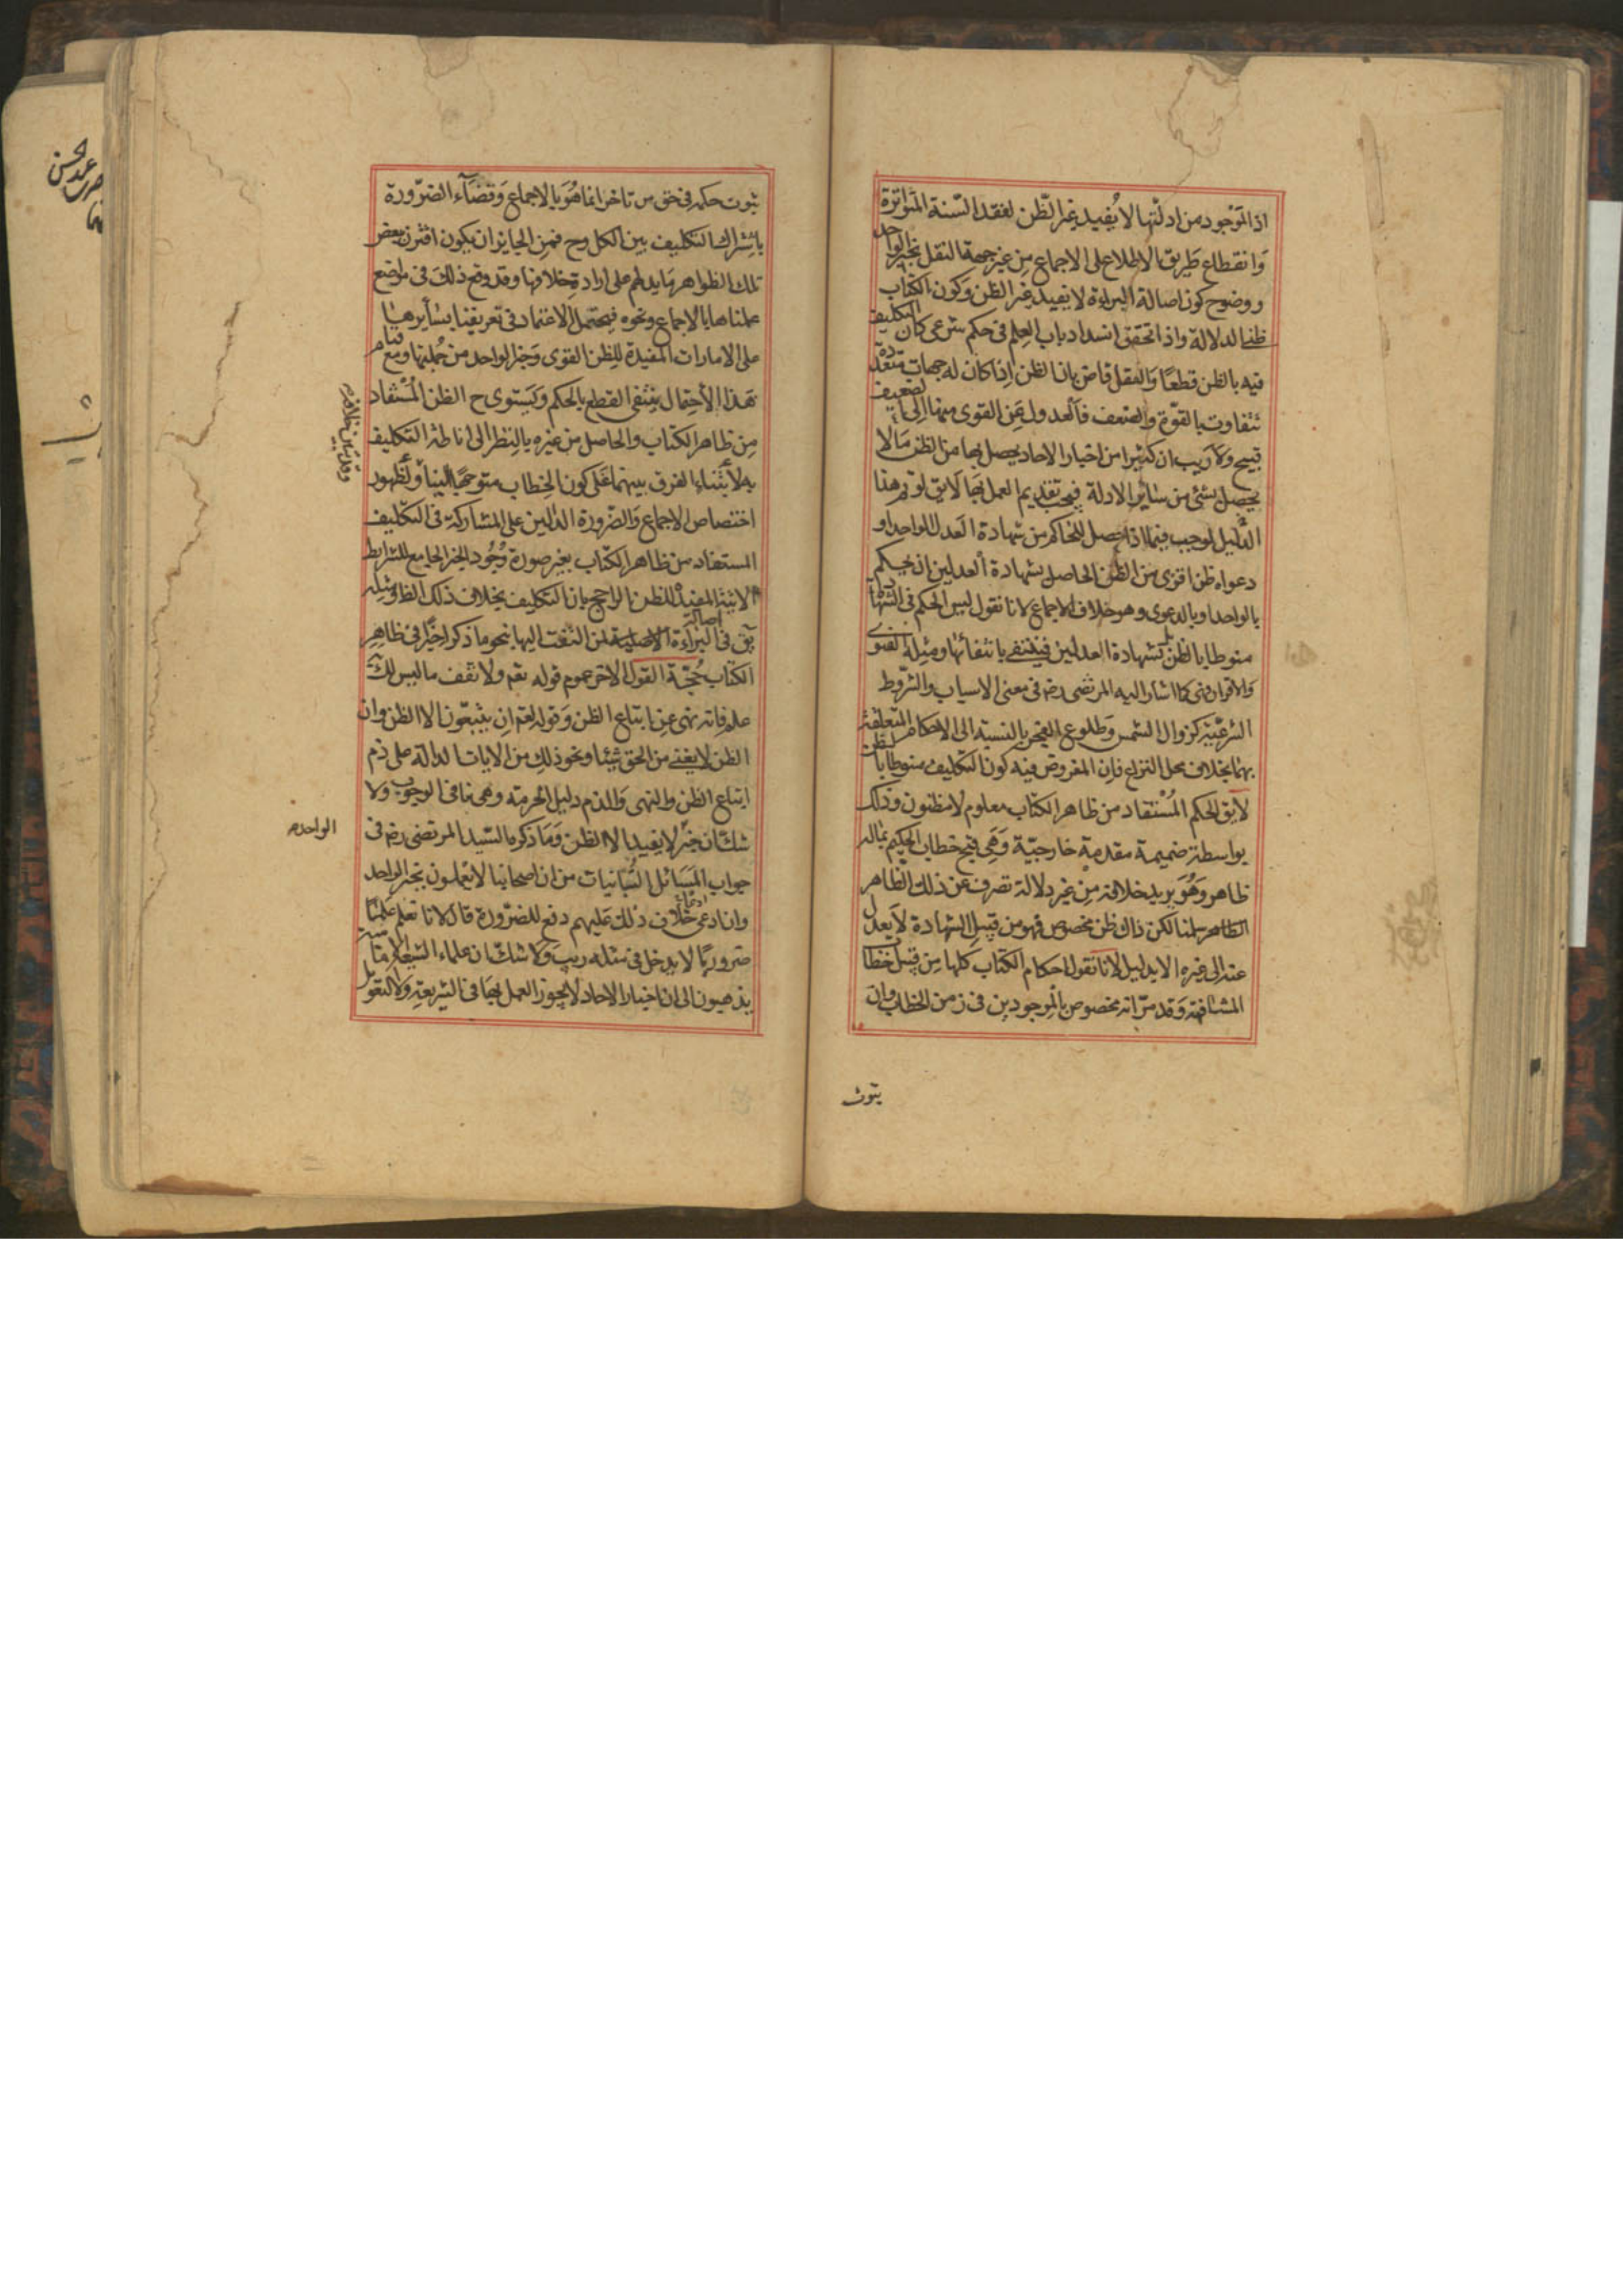 اذ الموجود من ادلتها لا يُفيد غير الظن لفقد السنة المتواترة
وَانقطاع طَريق الاطلاع على الاجماع مِن غير جهة النقل بخبر الواحد
ووضوح كون اصالة البراءة لا يفيد غير الظن وكون الكتاب
ظنى الدلالة واذا تحقق انسداد باب العِلم فى حكم شرعى كان التكليف
فيه بالظن قطعًا وَالعقل قاض بان الظن اذا كان له جهات متعددة
تتفاوت بالقوّة والضعف فالعدول عَن القوى منها الى الضعيف
قبيح ولا رَيب ان كثيرا من اخبار الاحاد يحصل بها من الظن مَا لا
يحصل بشئ من سَائر الادلة فيجب تقديم العمل بها لا يق لو تم هذا
الدليل لوجب فيما اذا حصل للحاكم من شهادة العَدل الواحد او
دعواه ظن اقوى من الظن الحاصل بشهادة العدلين ان يحكم
بالواحد او بالدعوى وهو خلاف الاجماع لانا نقول ليس الحكم فى الشهادة
منوطا بالظن بل بشهادة العدلين فينتفى بانتفائها ومثله الفتوى
وَالاقرار فهى كما اشار اليه المرتضى رضه فى معنى الاسباب والشروط
الشرعيّة كزوال الشمس وَطلوع الفجر بالنسبة الى الاحكام المتعلقة
بهما بخلاف محل النزاع فاِن المفروض فيه كون التكليف منوطا بالظن
لا يق الحكم المُستفاد من ظاهر الكتاب معلوم لا مظنون وذلك
بواسطة ضميمة مقدمة خارجيّة وَهَى قبح خطاب الحكيم بما له
ظاهر وَهُوَ يريد خلافه مِن غير دلالة تصرف عن ذلك الظاهر
سلمنا لكن ذاك ظن مخصوص فهو من قبيل الشهادة لا يعدل
عنه الى غيره الا بدليل لانا نقول احكام الكتاب كلها مِن قبيل خطاب
المشافهة وَقد مرّ انه مخصوص بالموجودين فى زمن الخطاب وان
ثبوت
ثبوت حكمه فى حق من تاخر انما هُوَ بالاجماع وَقضاء الضرّورة
باشتراك التكليف بين الكل وح فمِن الجايز ان يكون اقترن ببعض
تلك الظواهر مَا يدلهم على ارادة خلافها وقد وقع ذلك فى مواضع
علمناها بالاجماع ونحوه فيحتمل الاعتماد فى تعريفنا بسائرها
على الامارات المفيدة للِظن القوى وَخبر الواحد من جُملتها ومع قيام
هَذا الأحتمال ينتفى القطع بالحكم وَيَستوى ح الظن المُستفاد
مِن ظاهر الكتاب والحاصل من غيره بالنِظر الى اناطة التكليف
به لابتناء الفرق بينهما عَلى كون الخِطاب متوجهًا الينا
اختصاص الاجماع وَالضّرورة الدالين على المشاركة فى التكليف
المستفاد من ظاهر الكتاب بغير صورة وُجُود الخبر الجامع للشرايط
الاتية المفيد للظن الراجح بان التكليف بخلاف ذلك الظاهر ومثله
يق فى اصالة البراءة لمن التفت اليها بنحو ما ذكر اخيرًا فى ظاهِر
الكتاب حُجّة القول الاخر عموم قوله تعم ولا تقف ما ليس لك به
علم فانه نهى عِن اتباع الظن وَقوله تعم ان يتبعُون الا الظن وان
الظن لا يغنى من الحق شيئا ونحو ذلك من الايات الدالة على ذم
اتباع الظن والنهى وَالذم دليل الحرمة وهى تنافى الوجوب ولا
شك ان خبر لا يفيد الا الظن وَمَا ذكره السّيد المرتضى رضه فى
الواحد
جواب المَسَائل التّبّانيات من ان اصحابنا لا يعملون بخبر الواحد
وان ادعاء خلاف ذلك عَليهم دفع للضرّورة قال لانا نعلم عَلمًا
ضروريًا لا يدخل فى مثله ريب وَلا شك ان علماء الشيعة الامامية
يذهبون الى ان اخبار الاحاد لا يجوز العمل بها فى الشريعةِ وَلا التعويل